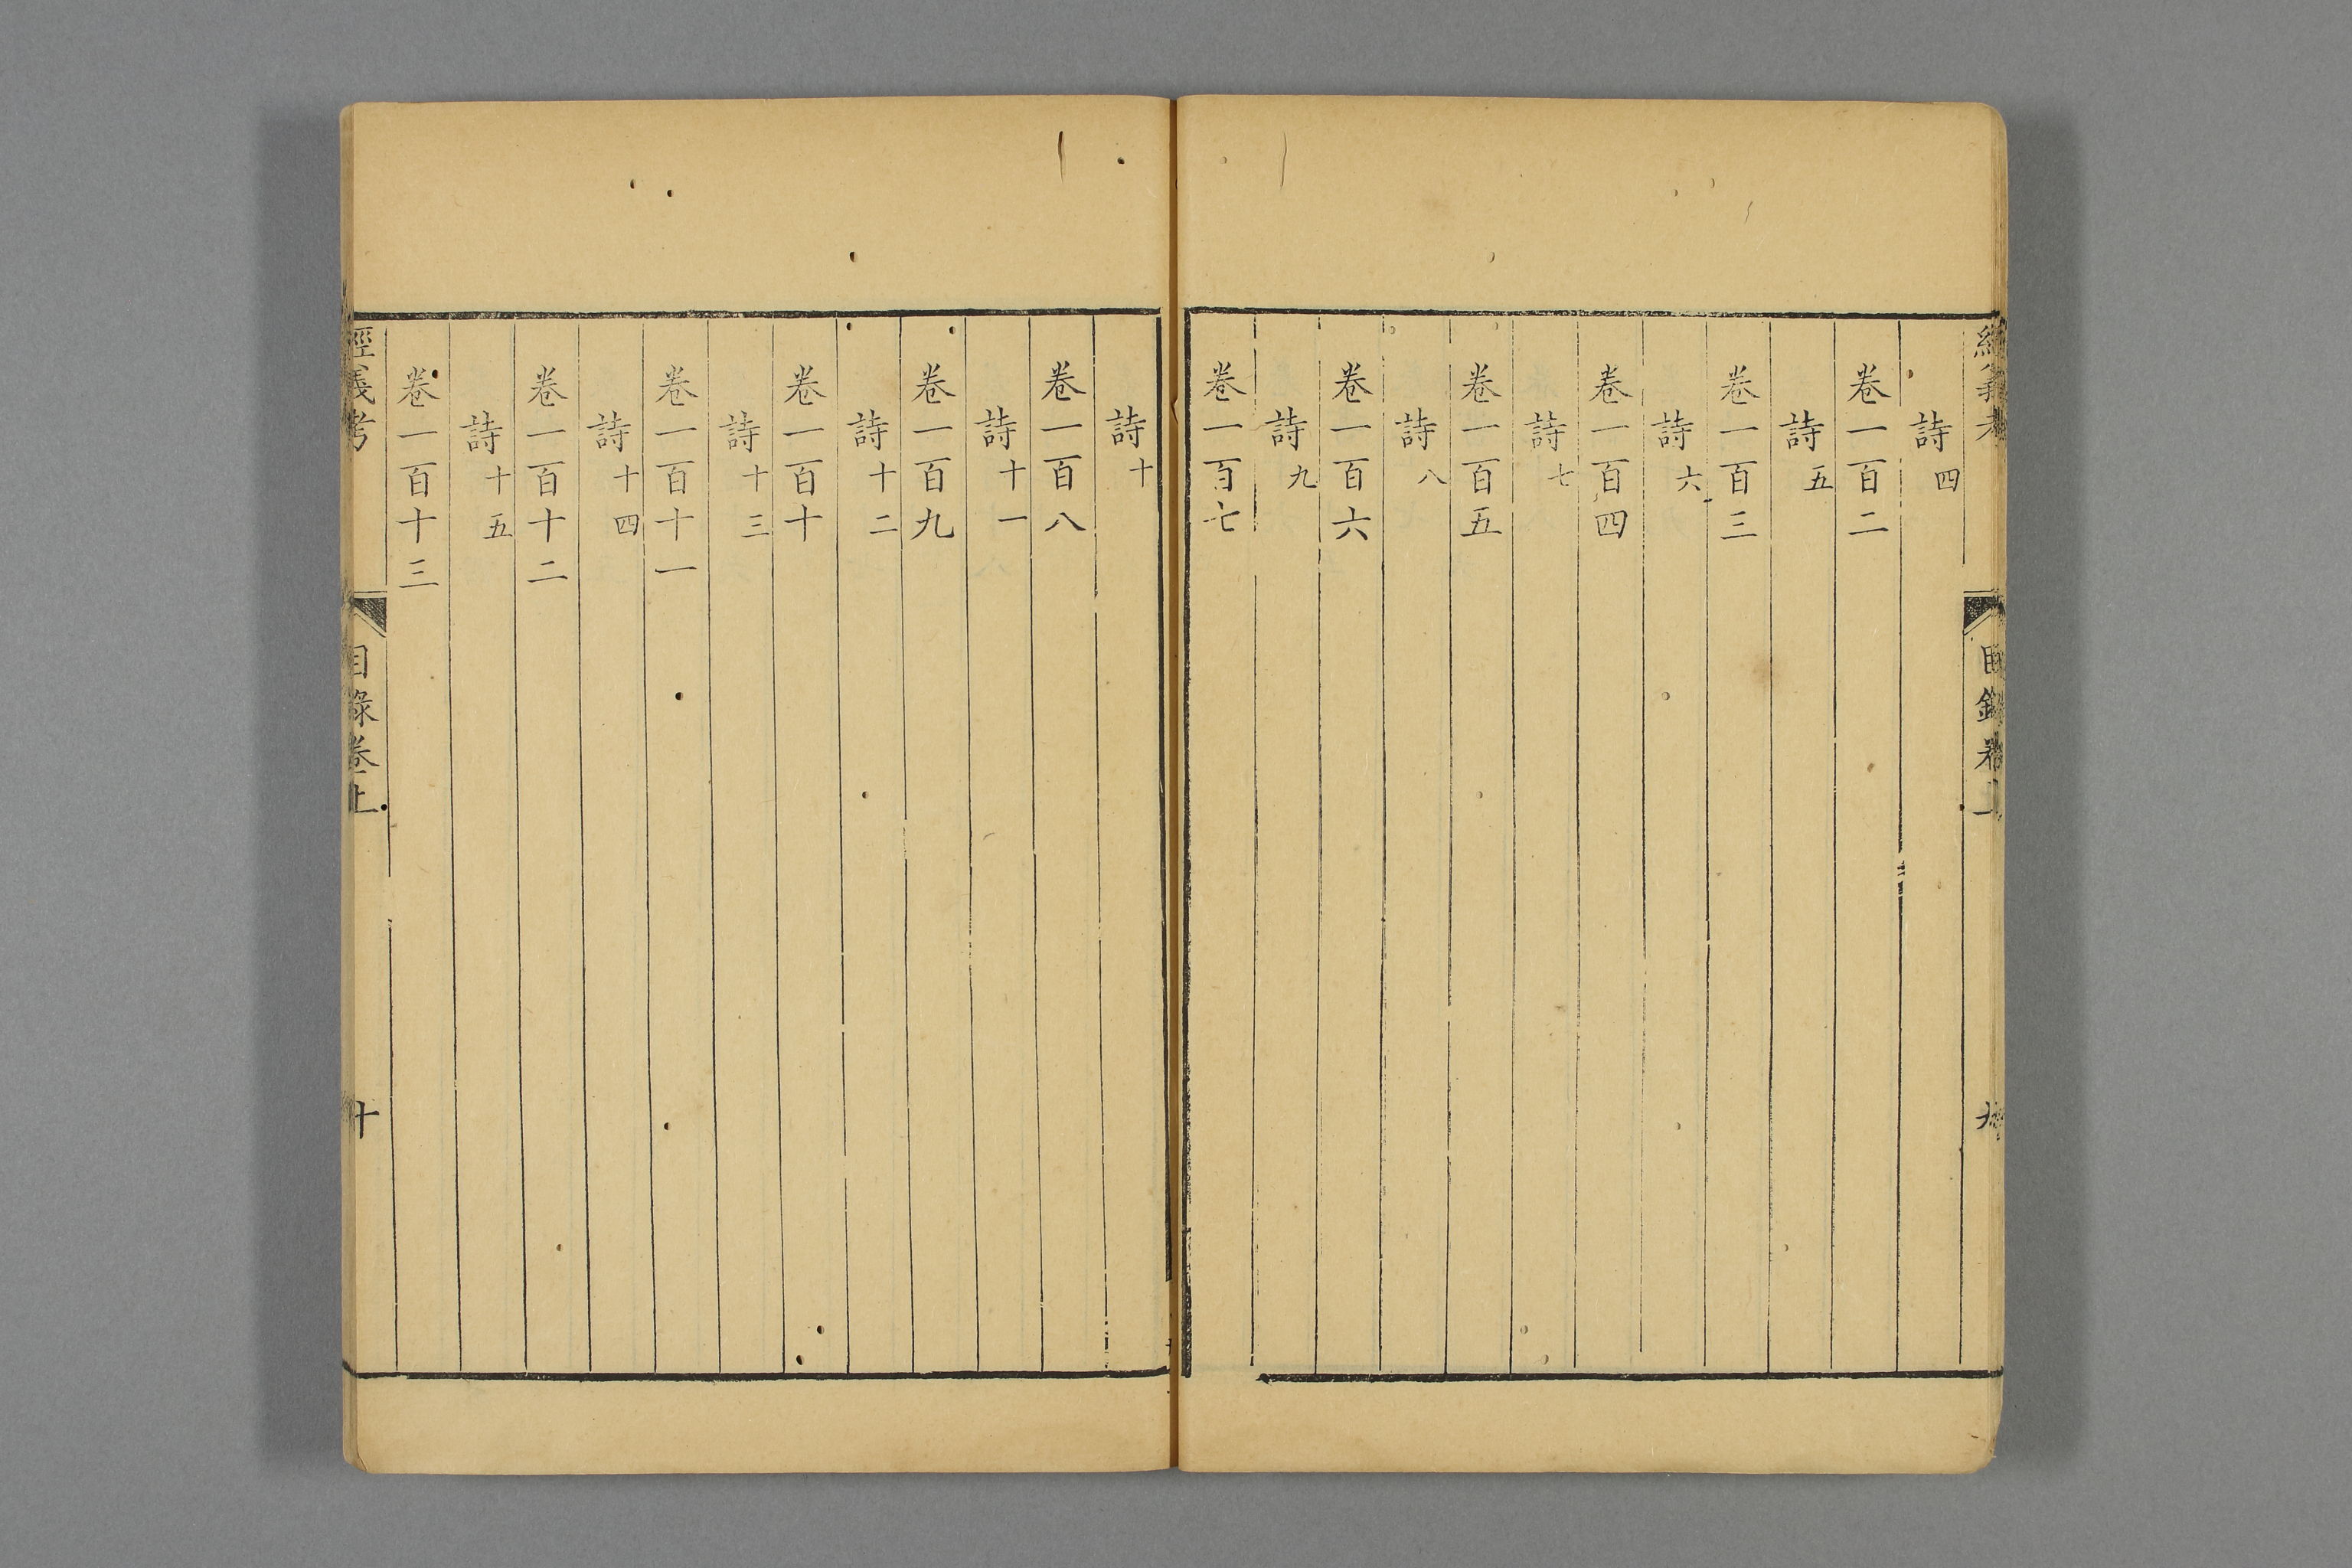 經義考
目錄卷上
九
詩四
卷一百二
詩五
卷一百三
詩六
卷一百四
詩七
卷一百五
詩八
卷一百六
詩九
卷一百七
詩十
卷一百八
詩十一
卷一百九
詩十二
卷一百十
詩十三
卷一百十一
詩十四
卷一百十二
詩十五
卷一百十三
經義考
目錄卷上
十